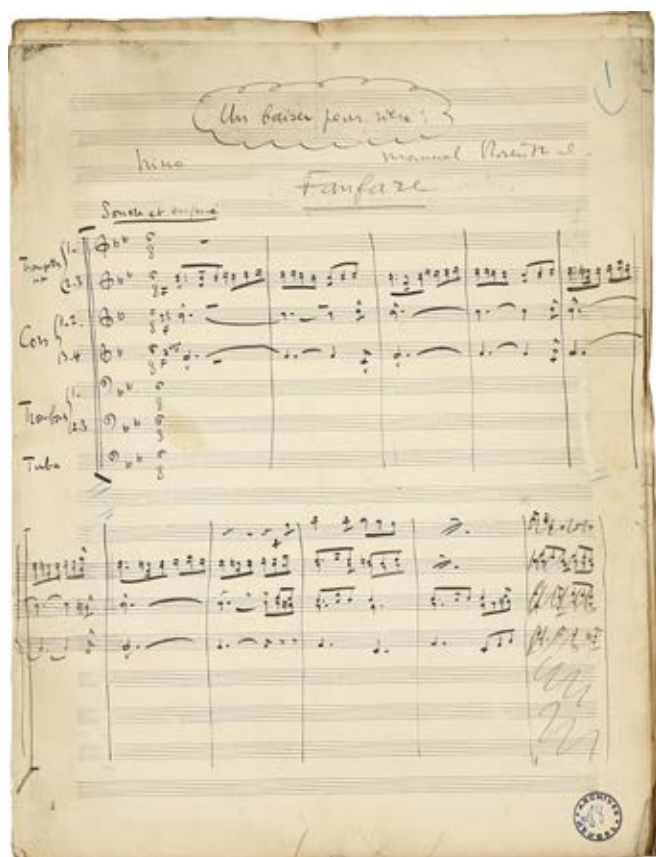 1
Un baiser pour rien :
Manuel Rosenthal
Fanfare
Trompettes
1.
2.3
Cors
1.2.
3.4
Trombones
1.
2.3
Tuba
ARCHIVES